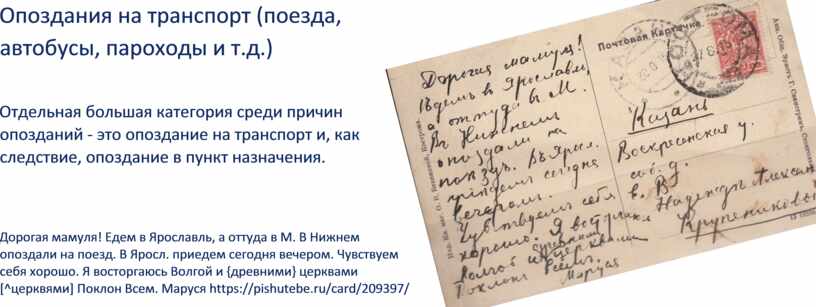 Опоздания на транспорт (поезда,
автобусы, пароходы и т.д.)
Отдельная большая категория среди причин
опозданий - это опоздание на транспорт и, как
следствие, опоздание в пункт назначения.
Дорогая мамуля! Едем в Ярославль, а оттуда в М. В Нижнем
опоздали на поезд. В Яросл. приедем сегодня вечером. Чувствуем
себя хорошо. Я восторгаюсь Волгой и {древними} церквами
[^церквями] Поклон Всем. Маруся https://pishutebe.ru/card/209397/
Почтовая Карточка
Дорогая мамуля!
Едем в Ярославль,
а оттуда в М.
В Нижнем
опоздали на
поезд. В Яросл.
приедем сегодня
вечером.
Чувствуем себя
хорошо. Я восторгаюсь
Волгой и церквами
Поклон Всем.
Маруся
Казань
Воскресенская у.
соб. д.
Е. В.
Надежде Алексан
Крупениковой